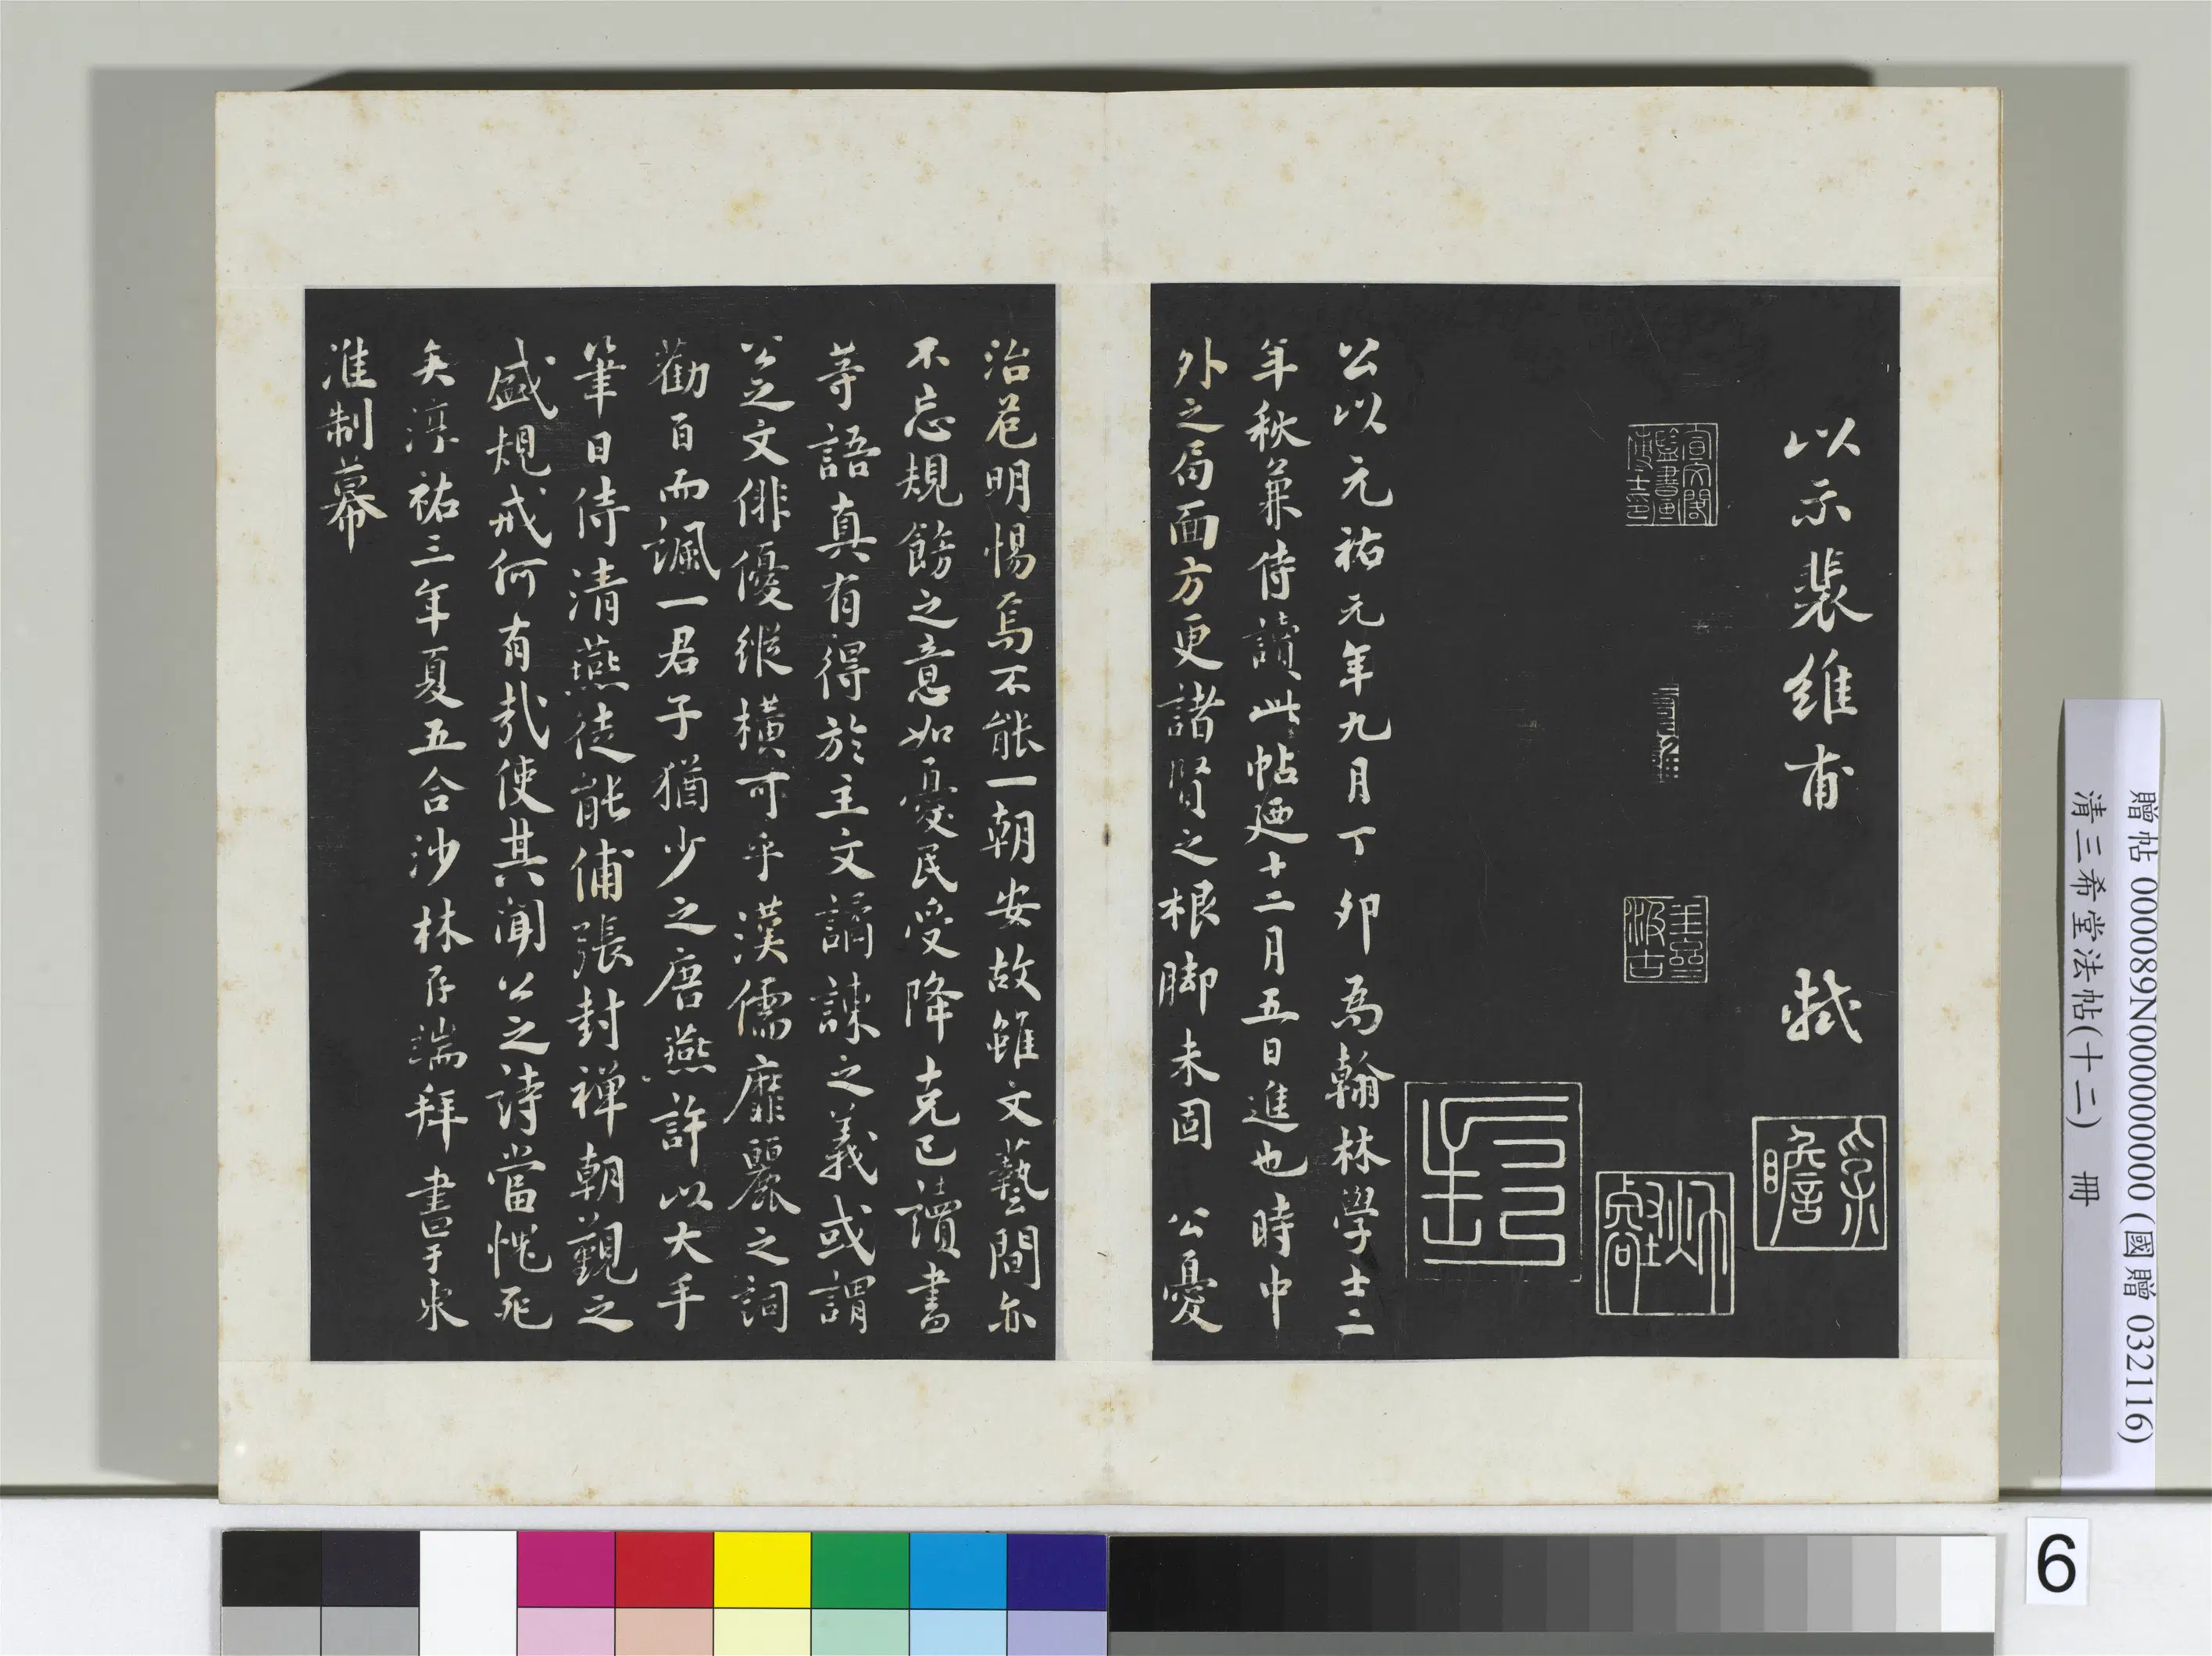 以示裴維甫　軾
宣文閣
監書畫
博士印
公以元祐元年九月丁卯為翰林學士二
年秋兼侍讀此帖廼十二月五日進也時中
外之局面方更諸賢之根脚未固　公憂
治危明惕焉不能一朝安故雖文藝間亦
不忘規飭之意如憂民受降克己讀書
等語真有得於主文譎諫之義或謂
公之文俳優縱橫可乎漢儒靡麗之詞
勸百而諷一君子猶少之唐燕許以大手
筆日侍清燕徒能俌張封禪朝覲之
盛規戒何有哉使其聞公之詩當愧死
矣淳祐三年夏五合沙林存端拜書于東
淮制幕
贈帖 000089N000000000 (國贈 032116)
清三希堂法帖(十二)　冊
6